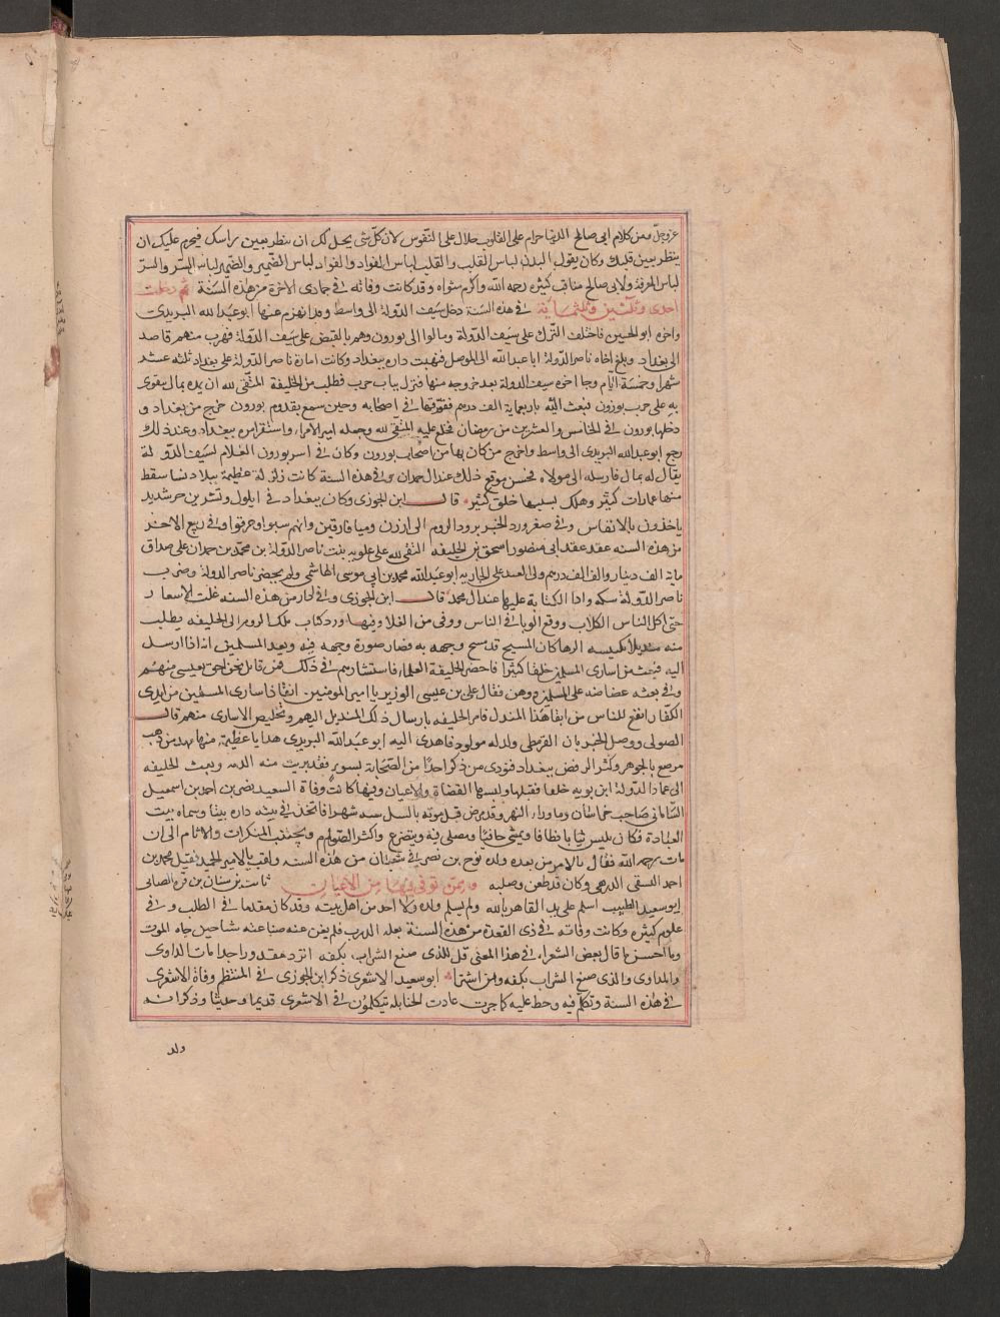 عزوجل ومن كلام ابى صالح الدنيا حرام على القلوب حلال على النفوس لان كل شى يحل لك ان تنظر بعين راسك فيحرم عليك ان
ينظر بعين قلبك وكان يقول البدن لباس القلب والقلب لباس الفواد والفواد لباس الضمير والضمير لباس السر والسر
لباس المعرفة ولابى صالح مناقب كثيرة رحمه الله واكرم مثواه وقد كانت وفاته فى جمادى الاخرة من هذه السنة ثم دخلت
احدى وثلثين وثلثماية فى هذه السنة دخل سيف الدولة الى واسط وقد انهزم عنها ابو عبد الله البريدى
واخوه ابو الحسين فاختلف الترك على سيف الدولة ومالوا الى بورون وهم بالقبض على سيف الدولة فهرب منهم قاصد
الى بغداد وبلغ اخاه ناصر الدولة ابا عبد الله الى الموصل فنهبت داره ببغداد وكانت امارة ناصر الدولة على بغداد ثلثة عشر
شهرا وخمسة ايام وجا اخوه سيف الدولة بعد خروجه منها فنزل بباب حرب فطلب من الخليفة المتقى لله ان يمده بمال يتقوى
به على حرب بوزون فبعث اليه باربعماية الف درهم ففرقها فى اصحابه وحين سمع بقدوم بورون خرج من بغداد و
دخلها بورون فى الخامس والعشرين من رمضان فخلع عليه المتقى لله وجعله امير الامراء واستقر امره ببغداد وعند ذلك
رجع ابو عبد الله البريدى الى واسط واخرج من كان بها من اصحاب بورون وكان فى اسر بورون الغلام لسيف الدولة
يقال له ثمال فارسله الى مولاه فحسن موقع ذلك عند ال حمدان وفى هذه السنة كانت زلزلة عظيمة ببلاد نسا سقط
منها عمارات كثيرة وهلك بسببها خلق كثير قال ابن الجوزى وكان ببغداد فى ايلول وتشرين حر شديد
ياخذون بالانفاس وفى صفر ورد الخبر بورود الروم الى ارزن وميافارقين وانهم سبوا وحرقوا وفى ربيع الاخر
من هذه السنه عقد عقد ابى منصور اسحق بن الخليفه المتقى لله على علويه بنت ناصر الدولة بن محمد بن حمدان على صداق
ماية الف دينار والف الف درهم وولى العقد على الجاريه ابو عبد الله محمد بن ابى موسى الهاشمى ولم يحضر ناصر الدولة وضرب
ناصر الدولة سكه وزاد الكتابة عليها عند ال محمد قال ابن الجوزى وفى اذار من هذه السنه غلت الاسعار
حتى اكل الناس الكلاب ووقع الوبا فى الناس وفيها ورد كتاب ملك الروم الى الخليفه يطلب
منه منديلا بكنيسه الرها كان المسيح قد مسح وجهه به فصار صورة وجهه فيه ويعد المسلمين انه اذا ارسل
اليه فبعث من اسارى المسلمين خلقا كثيرا فاحضر الخليفة العلماء فاستشارهم فى ذلك فمن قائل نحن احق بعيسى منهم
وفى بعثه غضاضه على المسلمين ووهن فقال على بن عيسى الوزير يا امير المومنين انقاذ اسارى المسلمين من ايدى
الكفار انفع للناس من ابقا هذا المنديل فامر الخليفه بارسال ذلك المنديل اليهم وتخليص الاسارى منهم قال
الصولى ووصل الخبر بان القرمطى ولد له مولود فاهدى اليه ابو عبد الله البريدى هدايا عظيمة منها مهد من ذهب
مرصع بالجوهر وكثر الرفض ببغداد فنودى من ذكر احدا من الصحابة بسوء فقد بريت منه الذمه وبعث الخليفه
الى عماد الدولة ابن بويه خلعا فقبلها ولبسها القضاة والاعيان وفيها كانت وفاة السعيد نصر بن احمد بن اسمعيل
السامانى صاحب خراسان وما وراء النهر وقد مرض قبل موته بالسل سنه شهرا فاتخذ فى بيته داره بيتا وسماه بيت
العبادة فكان يلبس ثيابا نظافا ويمشى حافيا ويصلى فيه ويتضرع واكثر الصوم ويجتنب المنكرات والاثام الى ان
مات رحمه الله فقام بالامر من بعده ولده نوح بن نصر فى شعبان من هذه السنه ولقب بالامير الحميد فقتل محمد بن
احمد النسفى وكان قد طعن وصلبه وممن توفى فيها من الاعيان ثابت بن سنان بن قرة الصابى
ابو سعيد الطبيب اسلم على يد القاهر بالله ولم يسلم ولده ولا احد من اهل بيته وقد كان مقدما فى الطلب وفى
علوم كثيرة وكانت وفاته فى ذى القعدة من هذه السنة بعله الذرب فلم يغن عنه صناعته شيا حين جاه الموت
وما احسن ما قال بعض الشعراء فى هذا المعنى قل للذى صنع الشراب بكفه اترد مقدورا جرا مات المداوى
والمداوى والذى صنع الشراب بكفه ومن اشتراه ابو سعيد الاشعرى ذكر ابن الجوزى فى المنتظم وفاة الاشعرى
فى هذه السنة وتكلم فيه وحط عليه كما جرت عادت الحنابله يتكلمون فى الاشعرى قديما وحديثا وذكر انه
ولد